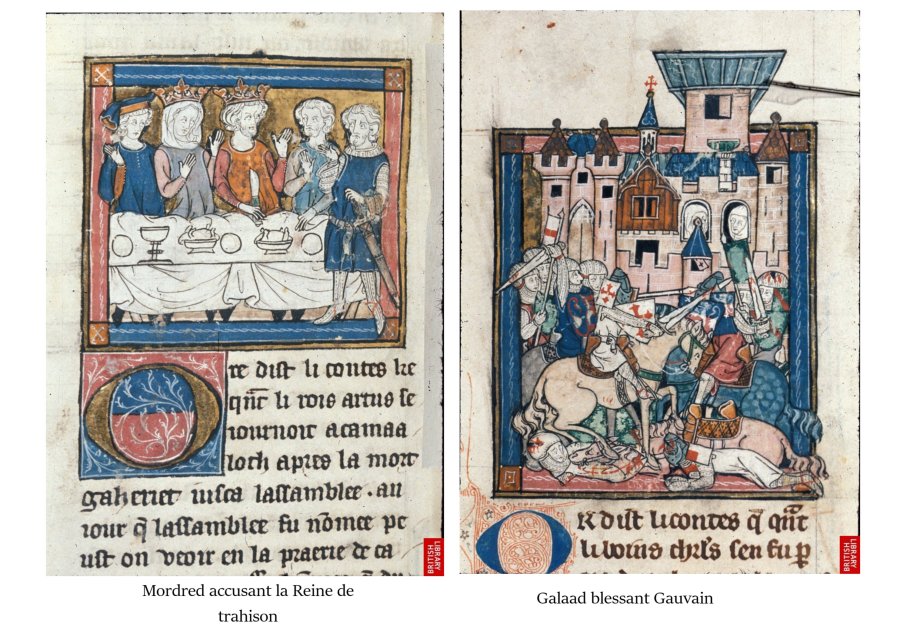 Ore dist li contes ke
qñt li rois artus se
iournoit acamaa
loch apres la mort
gaheriet iusca lassamblee . au
iour q̃ lassamblee fu nõmee pe
ust on veoir en la praerie de ca
BRITISH
LIBRARY
Mordred accusant la Reine de
trahison
OR dist li contes q̃ qñt
li boins chrl's sen fu p
BRITISH
LIBRARY
Galaad blessant Gauvain